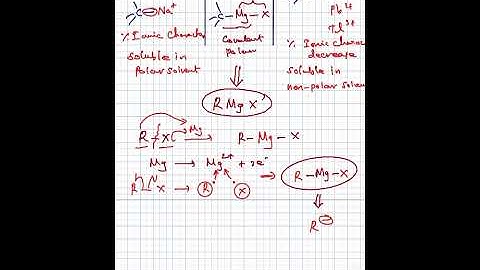 C⊖Na⁺
C–Mg–X
Pb⁴⁺
Tl³⁺
% Ionic Character
soluble in
Polar solvent
Covalent
polar
% Ionic charac
decrease
soluble in
non-polar solven
R Mg X
R–X Mg → R–Mg–X
Mg → Mg²⁺ + 2e⁻
R X → R• •X → R–Mg–X
⇓
R⊖